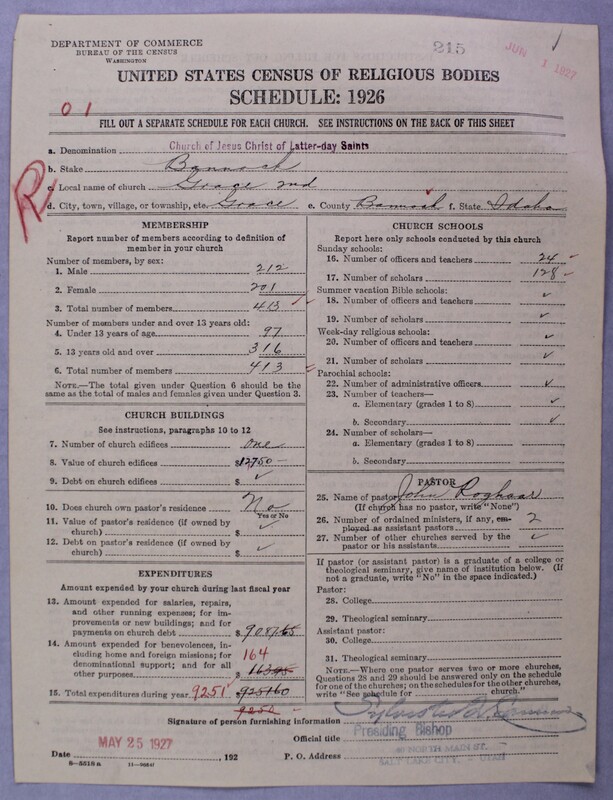 DEPARTMENT OF COMMERCE
BUREAU OF THE CENSUS
WASHINGTON
215
JUN 1 1927
UNITED STATES CENSUS OF RELIGIOUS BODIES
SCHEDULE: 1926
01
FILL OUT A SEPARATE SCHEDULE FOR EACH CHURCH. SEE INSTRUCTIONS ON THE BACK OF THIS SHEET
a. Denomination Church of Jesus Christ of Latter-day Saints
b. Stake Bannock
R
c. Local name of church Grace 2nd
d. City, town, village, or township, etc. Grace e. County Bannock f. State Idaho
MEMBERSHIP
Report number of members according to definition of
member in your church
Number of members, by sex:
1. Male 212
2. Female 201
3. Total number of members 413
Number of members under and over 13 years old:
4. Under 13 years of age 97
5. 13 years old and over 316
6. Total number of members 413
NOTE.—The total given under Question 6 should be the
same as the total of males and females given under Question 3.
CHURCH BUILDINGS
See instructions, paragraphs 10 to 12
7. Number of church edifices one
8. Value of church edifices $12750
9. Debt on church edifices $ ✓
10. Does church own pastor's residence No
Yes or No
11. Value of pastor's residence (if owned by
church) $ ✓
12. Debt on pastor's residence (if owned by
church) $ ✓
EXPENDITURES
Amount expended by your church during last fiscal year
13. Amount expended for salaries, repairs,
and other running expenses; for im-
provements or new buildings; and for
payments on church debt $ 9087.65
14. Amount expended for benevolences,
including home and foreign missions; for
denominational support; and for all
other purposes $ 16395
164
15. Total expenditures during year 9251 925160
9252
CHURCH SCHOOLS
Report here only schools conducted by this church
Sunday schools:
16. Number of officers and teachers 24
17. Number of scholars 128
Summer vacation Bible schools:
18. Number of officers and teachers ✓
19. Number of scholars ✓
Week-day religious schools:
20. Number of officers and teachers ✓
21. Number of scholars ✓
Parochial schools:
22. Number of administrative officers ✓
23. Number of teachers—
a. Elementary (grades 1 to 8) ✓
b. Secondary ✓
24. Number of scholars—
a. Elementary (grades 1 to 8)
b. Secondary
PASTOR
25. Name of pastor John Roghaar
(If church has no pastor, write "None")
26. Number of ordained ministers, if any, em-
ployed as assistant pastors 2
27. Number of other churches served by the
pastor or his assistants ✓
If pastor (or assistant pastor) is a graduate of a college or
theological seminary, give name of institution below. (If
not a graduate, write "No" in the space indicated.)
Pastor:
28. College
29. Theological seminary
Assistant pastor:
30. College
31. Theological seminary
NOTE.—Where one pastor serves two or more churches,
Questions 28 and 29 should be answered only on the schedule
for one of the churches; on the schedules for the other churches,
write "See schedule for church."
Signature of person furnishing information
Official title Presiding Bishop
MAY 25 1927
Date , 192 P. O. Address 40 NORTH MAIN ST.
SALT LAKE CITY, - UTAH